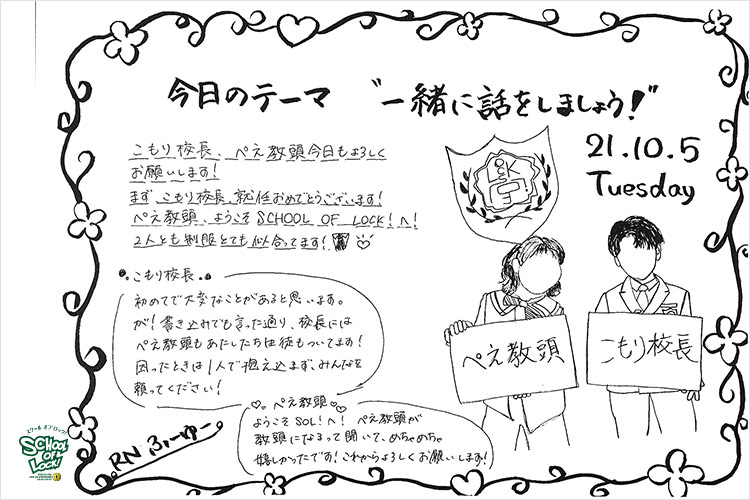 今日のテーマ "一緒に話をしましょう!"
21.10.5
Tuesday
こもり校長、ぺえ教頭今日もよろしく
お願いします!
まず、こもり校長就任おめでとうございます!
ぺえ教頭、ようこそSCHOOL OF LOCK!へ!
2人とも制服とても似合ってます!
こもり校長
初めてで大変なことがあると思います。
が!書き込みでも言った通り、校長には
ぺえ教頭もあたしたち生徒もついてます!
困ったときは1人で抱え込まず、みんなを
頼ってください!
ぺえ教頭
こもり校長
ぺえ教頭
ようこそSOL!へ! ぺえ教頭が
教頭になるって聞いて、めちゃめちゃ
嬉しかったです!これからよろしくお願いします!
RN ふーゆー
スクール オブ ロック!
SCHOOL
OF
LOCK!